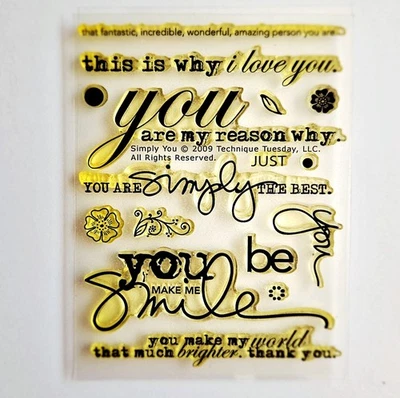 that fantastic, incredible, wonderful, amazing person you are.
this is why i love you.
you
are my reason why.
Simply You © 2009 Technique Tuesday, LLC.
All Rights Reserved.
JUST
YOU ARE simply THE BEST.
you
you be
MAKE ME
smile
you make my world
that much brighter. thank you.